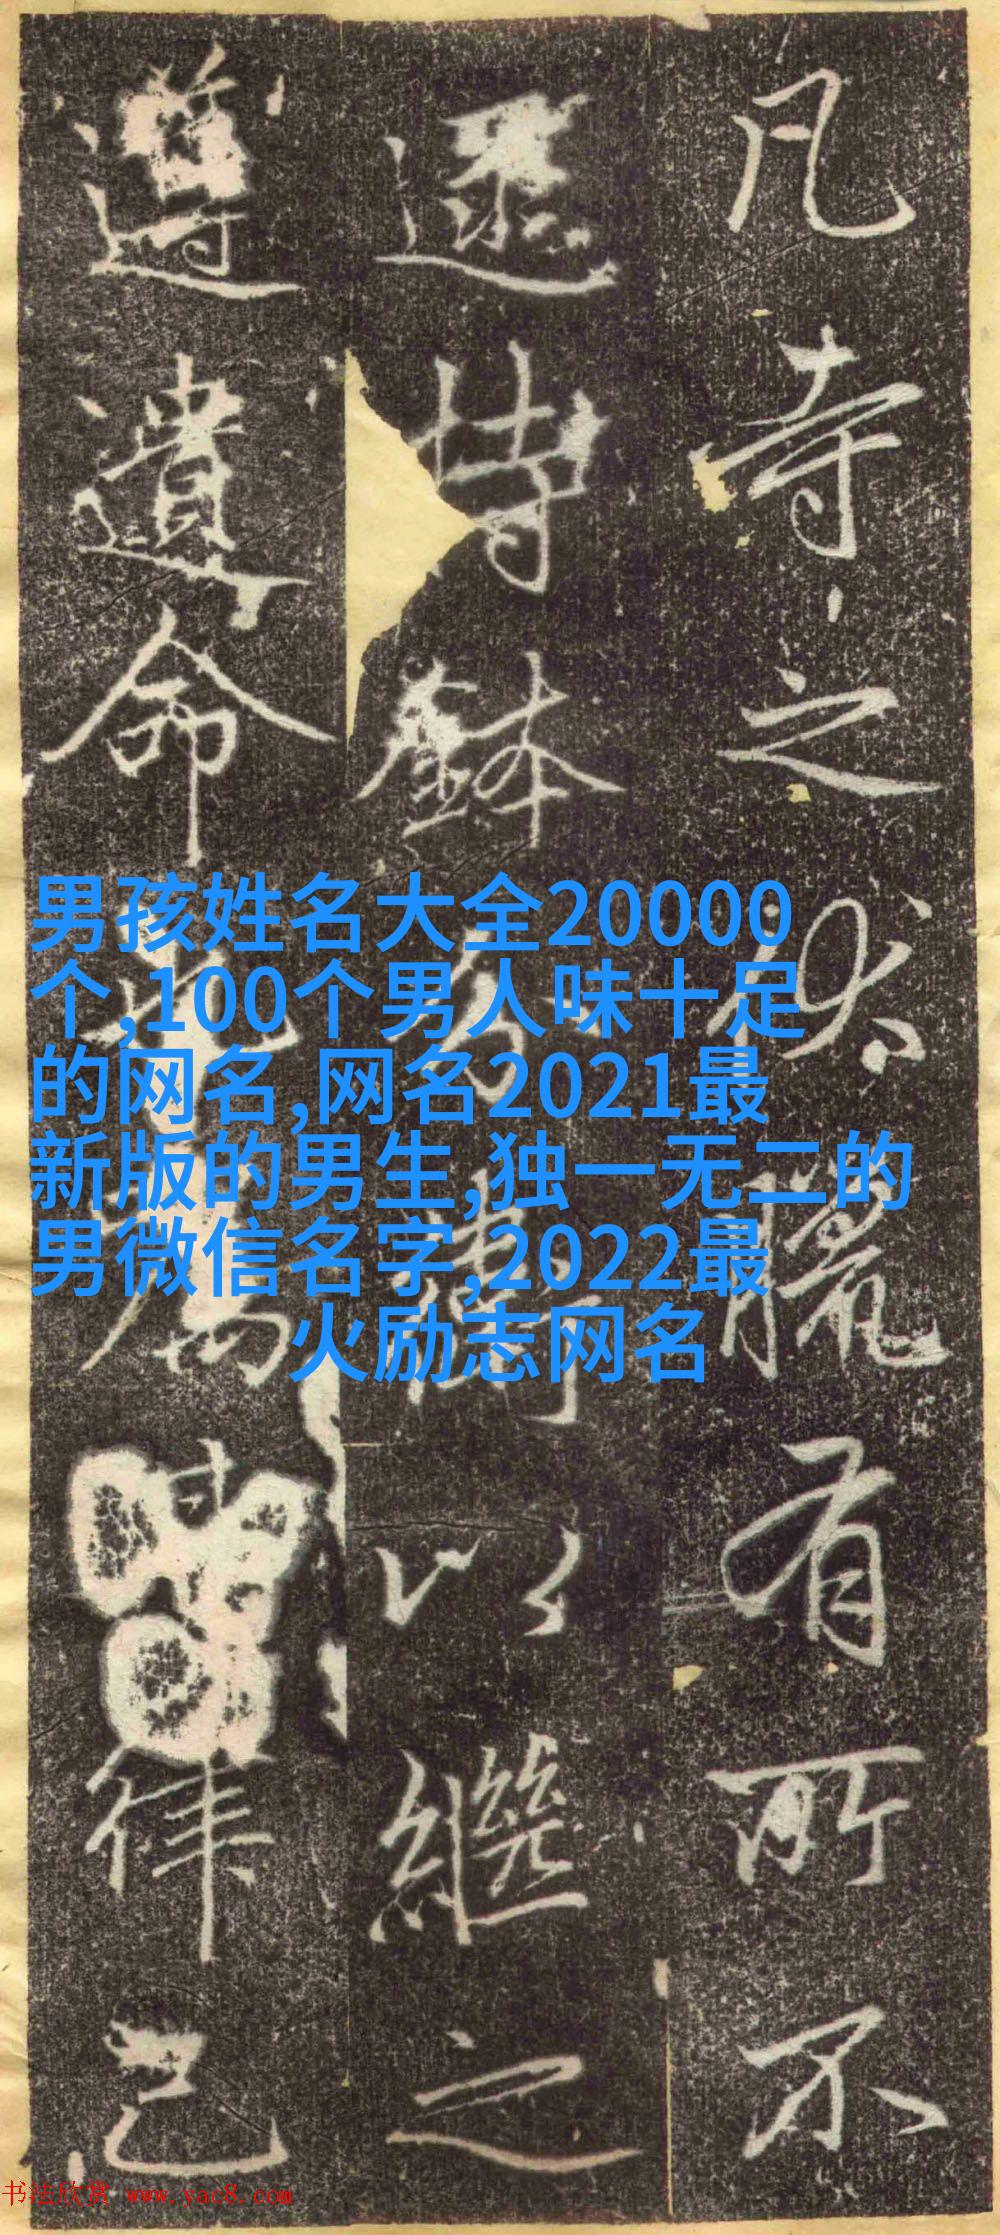 凡寺之伏臘有所不
持鉢以繼之
遵遺命律己
男孩姓名大全20000
个,100个男人味十足
的网名,网名2021最
新版的男生,独一无二的
男微信名字,2022最
火励志网名
书法欣赏 www.yac8.com